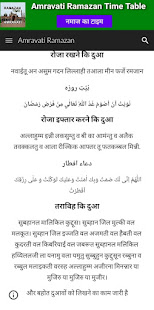 Amravati Ramazan Time Table
नमाज का टाइम
Amravati Ramazan
रोजा रखने कि दुआ
नवाईतु अन असुम गदन लिल्लाही तआला मीन फर्ज रमजान
نیت روزه
نَوَيْتُ اَنْ اَصُوْمَ غَدً اللهِ تَعَالىٰ مِنْ فَرْضِ رَمَضَان
रोजा इफ्तार करने कि दुआ
अल्लाहुम्म इन्नी लकसुम्तु व बी का आमंतु व अलैक
तवक्कलतु व आला रीज्किक आफतर तू फतकब्बल मिन्नी.
دعاء افطار
اَللّٰهُمَّ اِنِّی لَکَ صُمْتُ وَبِکَ اٰمَنْتُ وَعَلَيْكَ تَوَكَّلْتُ وَ عَلىٰ رِزْقِكَ
اَفْطَرْتُ
तरावीह कि दुआ
सुबहानल मालिकिल कुद्दूस। सुब्हान जिल मुल्की वल
मलकूत। सुब्हान जिल इज्जती वल अजमती वल हैबती वल
कुदरती वल किब्रियाई वल जबरूत सुब्हानल मलिकिल
हय्यिल्लजी ला यनामु वला यमुतु सुब्बुहून कुद्दूसून रब्बुना व
रब्बुल मलाइकती वर्रूह अल्लाहुम्म अजीरना मिनन्नार या
मुजिरु या मुजिरु या मुजीर
और बहोत दुआवो को लिखने का काम जारी है